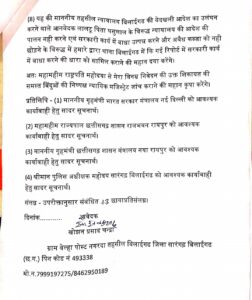 (8) यह की माननीय तहसील न्यायालय बिलाईगढ़ की बेदखली आदेश का उलंघन
करने वाले अनावेदक लालहु पिता घसुनाल के विरूध्द न्यायालय की आदेश की
पालन नही करने एवं सरकारी कार्य में बाधा उत्पन्न करने और अवैध कब्जा को नही
छोड़ने के विरूध्द में हमारे द्वारा थाना बिलाईगढ़ में कि गई रिपोर्ट में सरकारी कार्य
में बाधा करने की धारा को शामिल कराने की महान दया करेंगे।
अतः महामहिम राष्ट्रपति महोदया से मेरा विनम्र निवेदन की उक्त शिकायत की
समस्त बिंदुओं की निष्पक्ष न्यायिक मजिस्ट्रेट जांच कराने की महान कृपा करेंगे।
प्रतिलिपि - (1) माननीय गृहमंत्री भारत सरकार मंत्रालय नई दिल्ली को आवश्यक
कार्यावाही हेतु सादर सूचनार्थ।
(2) महामहिम राज्यपाल छत्तीसगढ़ शासन राजभवन रायपुर को आवश्यक
कार्यावाही हेतु सादर सूचनार्थ।
(3) माननीय गृहमंत्री छत्तीसगढ़ शासन मंत्रालय नया रायपुर को आवश्यक
कार्यावाही हेतु सादर सूचनार्थ।
(4) श्रीमान पुलिस अधीक्षक महोदय सारंगढ़ बिलाईगढ़ को आवश्यक कार्यावाही
हेतु सादर सूचनार्थ।
संलग्न - उपरोक्तानुसार संबंधित छायाप्रतिसंलग्न।
दिनांक............ आवेदक
प्रसाद चन्द्रा
ग्राम बेल्हा पोस्ट नगरदा तहसील बिलाईगढ़ जिला सारंगढ़ बिलाईगढ़
(छ.ग.) पिन कोड नं 493338
मो.न.7999197275/8462950189